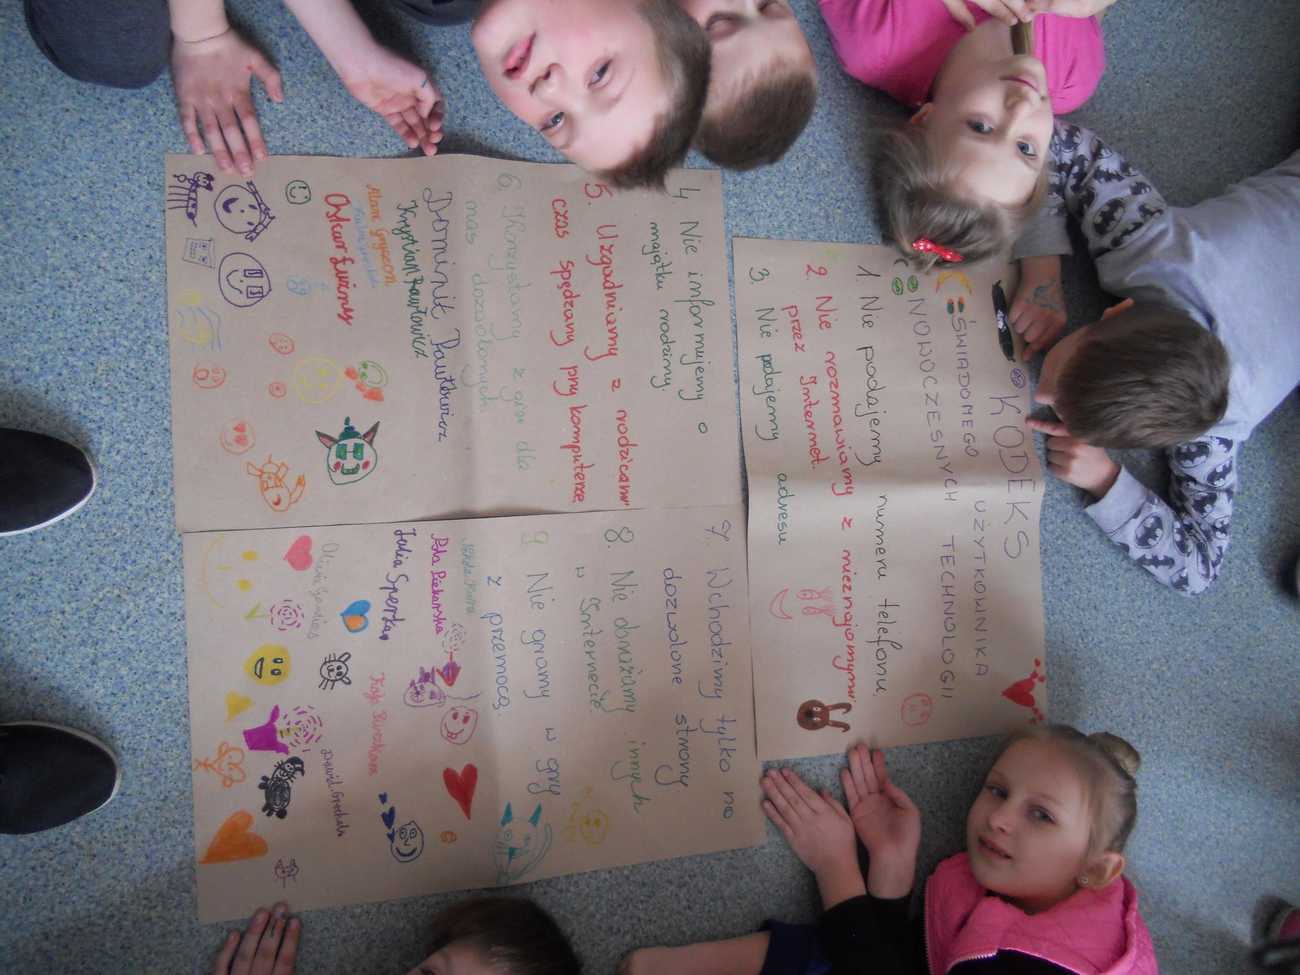 KODEKS
ŚWIADOMEGO UŻYTKOWNIKA
NOWOCZESNYCH TECHNOLOGII
1. Nie podajemy numeru telefonu
2. Nie rozmawiamy z nieznajomymi
przez Internet.
3. Nie podajemy adresu
4 Nie informujemy o
majątku rodziny.
5. Uzgadniamy z rodzicami
czas spędzany przy komputerze
6 Korzystamy z gier dla
nas dozwolonych
Dominik Pawłowicz
Krystian Pawłowicz
Oskar
7. Wchodzimy tylko na
dozwolone strony
8. Nie obrażamy innych
w Internecie.
9 Nie gramy w gry
z przemocą.
Pola Piekarska
Julia Sperka
Kaja
Dawid